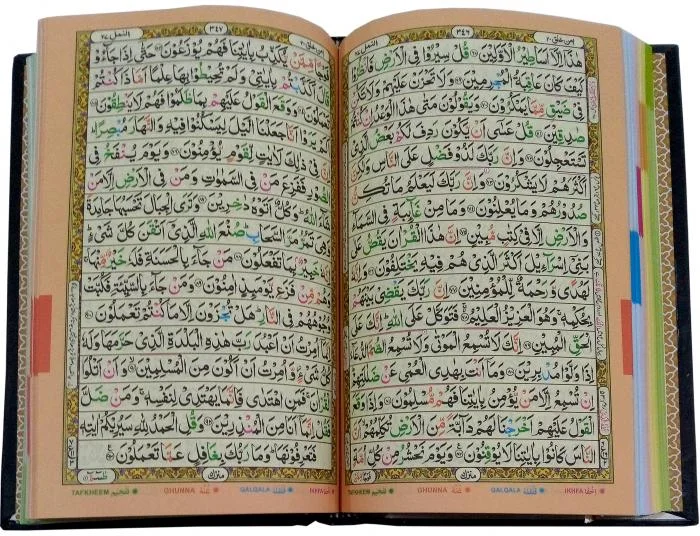 امن خلق ٢٠
٣٤٦
النمل ٢٧
هٰذَاۤ اِلَّاۤ اَسَاطِيْرُ الْاَوَّلِيْنَ ۝ قُلْ سِيْرُوْا فِي الْاَرْضِ فَانْظُرُوْا
كَيْفَ كَانَ عَاقِبَةُ الْمُجْرِمِيْنَ ۝ وَلَا تَحْزَنْ عَلَيْهِمْ وَلَا تَكُنْ
فِيْ ضَيْقٍ مِّمَّا يَمْكُرُوْنَ ۝ وَيَقُوْلُوْنَ مَتٰى هٰذَا الْوَعْدُ اِنْ كُنْتُمْ
صٰدِقِيْنَ ۝ قُلْ عَسٰۤى اَنْ يَّكُوْنَ رَدِفَ لَكُمْ بَعْضُ الَّذِيْ
تَسْتَعْجِلُوْنَ ۝ وَاِنَّ رَبَّكَ لَذُوْ فَضْلٍ عَلَى النَّاسِ وَلٰكِنَّ
اَكْثَرَهُمْ لَا يَشْكُرُوْنَ ۝ وَاِنَّ رَبَّكَ لَيَعْلَمُ مَا تُكِنُّ
صُدُوْرُهُمْ وَمَا يُعْلِنُوْنَ ۝ وَمَا مِنْ غَآئِبَةٍ فِي السَّمَآءِ
وَالْاَرْضِ اِلَّا فِيْ كِتٰبٍ مُّبِيْنٍ ۝ اِنَّ هٰذَا الْقُرْاٰنَ يَقُصُّ عَلٰى
بَنِيْۤ اِسْرَآءِيْلَ اَكْثَرَ الَّذِيْ هُمْ فِيْهِ يَخْتَلِفُوْنَ ۝ وَاِنَّهٗ
لَهُدًى وَّرَحْمَةٌ لِّلْمُؤْمِنِيْنَ ۝ اِنَّ رَبَّكَ يَقْضِيْ بَيْنَهُمْ
بِحُكْمِهٖ وَهُوَ الْعَزِيْزُ الْعَلِيْمُ ۝ فَتَوَكَّلْ عَلَى اللّٰهِ اِنَّكَ عَلَى
الْحَقِّ الْمُبِيْنِ ۝ اِنَّكَ لَا تُسْمِعُ الْمَوْتٰى وَلَا تُسْمِعُ الصُّمَّ الدُّعَآءَ
اِذَا وَلَّوْا مُدْبِرِيْنَ ۝ وَمَاۤ اَنْتَ بِهٰدِي الْعُمْيِ عَنْ ضَلٰلَتِهِمْ
اِنْ تُسْمِعُ اِلَّا مَنْ يُّؤْمِنُ بِاٰيٰتِنَا فَهُمْ مُّسْلِمُوْنَ ۝ وَاِذَا وَقَعَ
الْقَوْلُ عَلَيْهِمْ اَخْرَجْنَا لَهُمْ دَآبَّةً مِّنَ الْاَرْضِ تُكَلِّمُهُمْ اَنَّ
النَّاسَ كَانُوْا بِاٰيٰتِنَا لَا يُوْقِنُوْنَ ۝ وَيَوْمَ نَحْشُرُ مِنْ كُلِّ اُمَّةٍ
منزل
IKHFA إخفا
QALQALA قلقلة
GHUNNA غنة
TAFKHEEM تفخيم
امن خلق ٢٠
٣٤٧
النمل ٢٧
فَوْجًا مِّمَّنْ يُّكَذِّبُ بِاٰيٰتِنَا فَهُمْ يُوْزَعُوْنَ ۝ حَتّٰۤى اِذَا جَآءُوْ
قَالَ اَكَذَّبْتُمْ بِاٰيٰتِيْ وَلَمْ تُحِيْطُوْا بِهَا عِلْمًا اَمَّا ذَا كُنْتُمْ
تَعْمَلُوْنَ ۝ وَوَقَعَ الْقَوْلُ عَلَيْهِمْ بِمَا ظَلَمُوْا فَهُمْ لَا يَنْطِقُوْنَ ۝
اَلَمْ يَرَوْا اَنَّا جَعَلْنَا الَّيْلَ لِيَسْكُنُوْا فِيْهِ وَالنَّهَارَ مُبْصِرًا
اِنَّ فِيْ ذٰلِكَ لَاٰيٰتٍ لِّقَوْمٍ يُّؤْمِنُوْنَ ۝ وَيَوْمَ يُنْفَخُ فِي
الصُّوْرِ فَفَزِعَ مَنْ فِي السَّمٰوٰتِ وَمَنْ فِي الْاَرْضِ اِلَّا مَنْ
شَآءَ اللّٰهُ وَكُلٌّ اَتَوْهُ دٰخِرِيْنَ ۝ وَتَرَى الْجِبَالَ تَحْسَبُهَا جَامِدَةً
وَّهِيَ تَمُرُّ مَرَّ السَّحَابِ صُنْعَ اللّٰهِ الَّذِيْۤ اَتْقَنَ كُلَّ شَيْءٍ
اِنَّهٗ خَبِيْرٌۢ بِمَا تَفْعَلُوْنَ ۝ مَنْ جَآءَ بِالْحَسَنَةِ فَلَهٗ خَيْرٌ مِّنْهَا
وَهُمْ مِّنْ فَزَعٍ يَّوْمَئِذٍ اٰمِنُوْنَ ۝ وَمَنْ جَآءَ بِالسَّيِّئَةِ فَكُبَّتْ
وُجُوْهُهُمْ فِي النَّارِ هَلْ تُجْزَوْنَ اِلَّا مَا كُنْتُمْ تَعْمَلُوْنَ ۝
اِنَّمَاۤ اُمِرْتُ اَنْ اَعْبُدَ رَبَّ هٰذِهِ الْبَلْدَةِ الَّذِيْ حَرَّمَهَا وَلَهٗ
كُلُّ شَيْءٍ وَّاُمِرْتُ اَنْ اَكُوْنَ مِنَ الْمُسْلِمِيْنَ ۝ وَاَنْ اَتْلُوَا
الْقُرْاٰنَ فَمَنِ اهْتَدٰى فَاِنَّمَا يَهْتَدِيْ لِنَفْسِهٖ وَمَنْ ضَلَّ
فَقُلْ اِنَّمَاۤ اَنَا مِنَ الْمُنْذِرِيْنَ ۝ وَقُلِ الْحَمْدُ لِلّٰهِ سَيُرِيْكُمْ اٰيٰتِهٖ
فَتَعْرِفُوْنَهَا وَمَا رَبُّكَ بِغَافِلٍ عَمَّا تَعْمَلُوْنَ ۝
منزل
IKHFA إخفا
QALQALA قلقلة
GHUNNA غنة
TAFKHEEM تفخيم